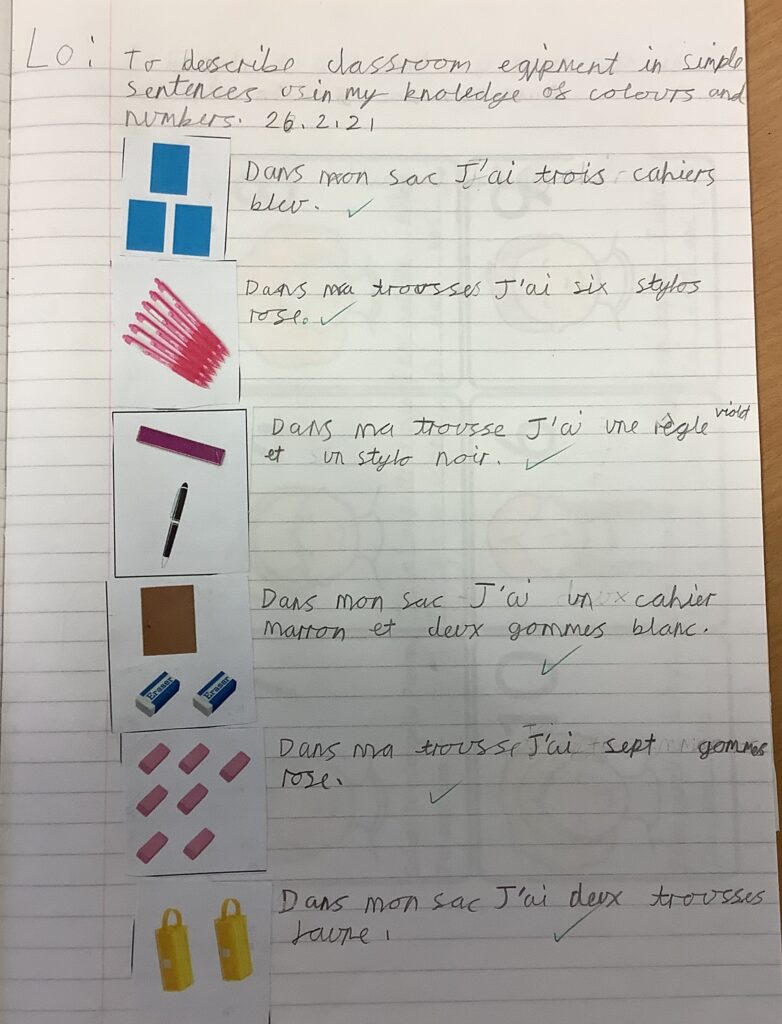 Lo: To describe classroom eqipment in simple
sentences usin my knoledge of colours and
numbers. 26.2.21
Dans mon sac J'ai trois cahiers
bleu.
Dans ma trousses J'ai six stylos
rose.
Dans ma trousse J'ai une règle violet
et un stylo noir.
Dans mon sac J'ai un cahier
marron et deux gommes blanc.
Eraser Eraser
Dans ma trousse J'ai sept gommes
rose.
Dans mon sac J'ai deux trousses
Jaune.